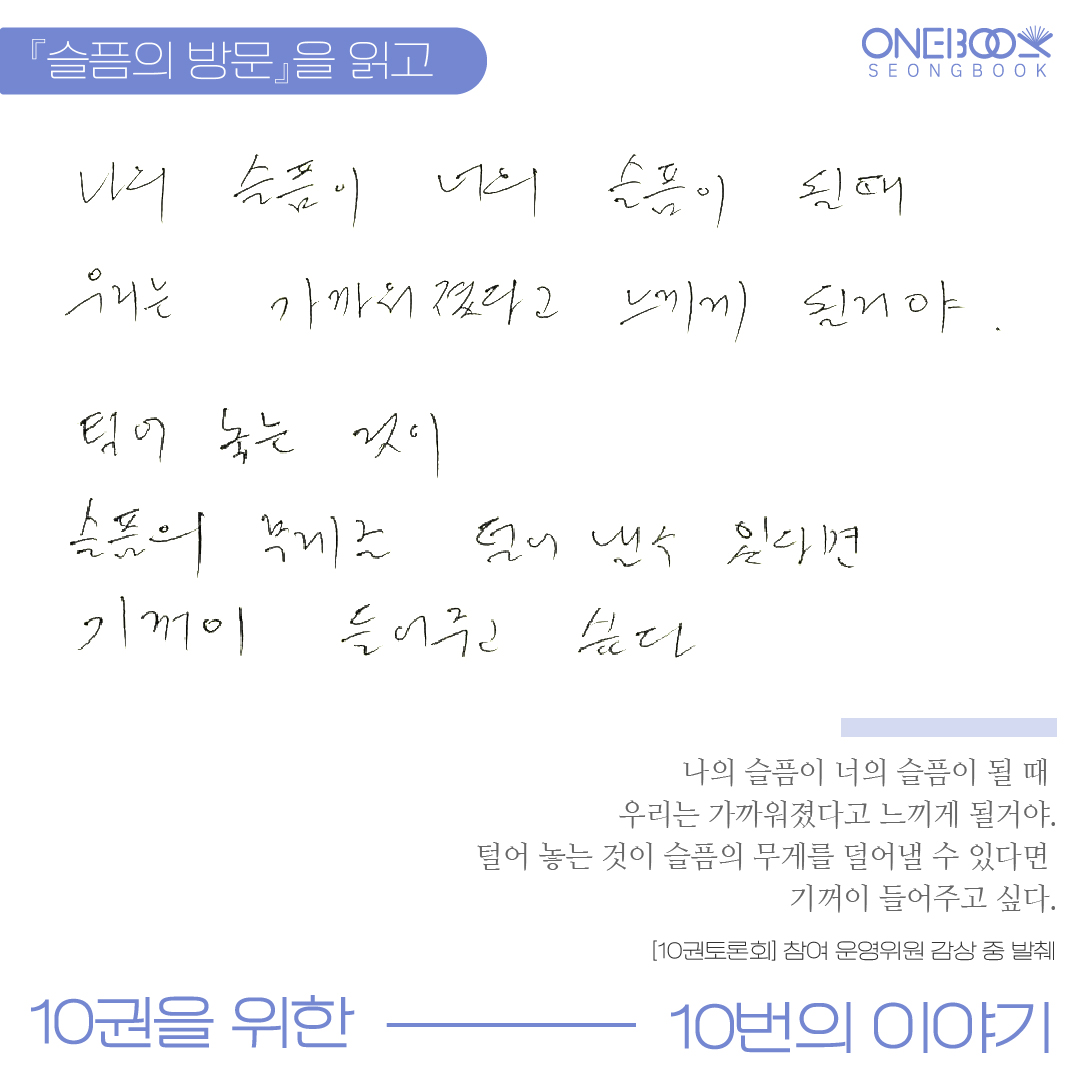 『슬픔의 방문』을 읽고
ONEBOOK
SEONGBOOK
나의 슬픔이 너의 슬픔이 될때
우리는 가까워졌다고 느끼게 될거야.
털어 놓는 것이
슬픔의 무게를 덜어 낼수 있다면
기꺼이 들어주고 싶다
나의 슬픔이 너의 슬픔이 될 때
우리는 가까워졌다고 느끼게 될거야.
털어 놓는 것이 슬픔의 무게를 덜어낼 수 있다면
기꺼이 들어주고 싶다.
[10권토론회] 참여 운영위원 감상 중 발췌
10권을 위한 10번의 이야기